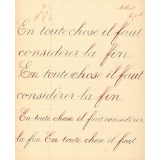 En toute chose il faut
considérer la fin.
En toute chose il faut
considérer la fin.
En toute chose il faut considérer
la fin En toute chose il faut